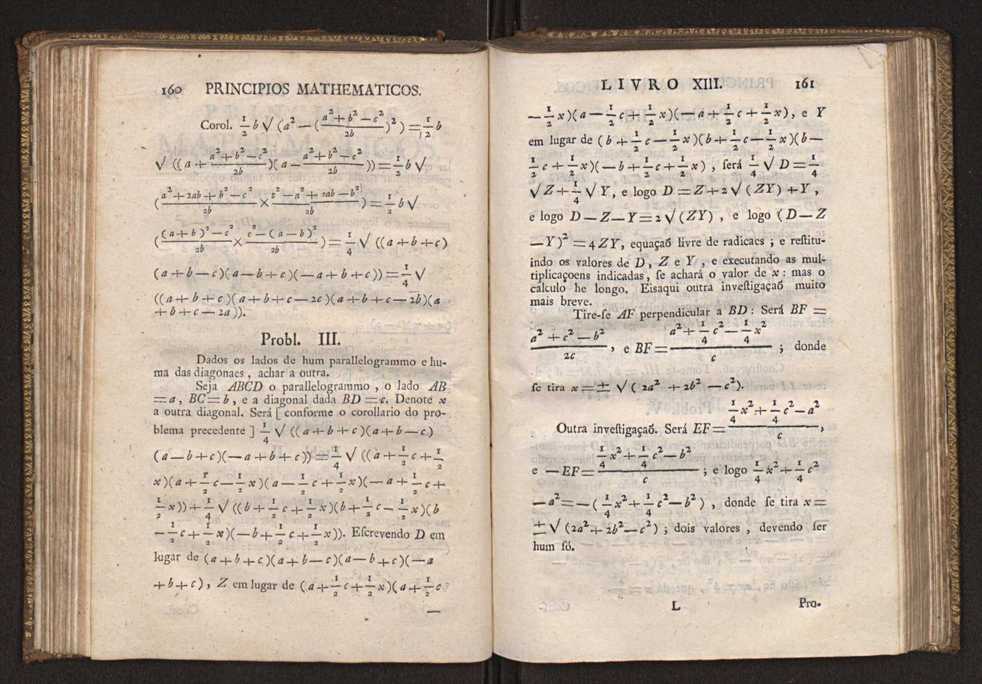 160 PRINCIPIOS MATHEMATICOS.
Corol. 1/2 b √ (a² — (a² + b² — c²/2b)²) = 1/2 b
√ ((a + a² + b² — c²/2b)(a — a² + b² — c²/2b)) = 1/2 b √
(a² + 2ab + b² — c²/2b × c² — a² + 2ab — b²/2b) = 1/2 b √
((a + b)² — c²/2b × c² — (a — b)²/2b) = 1/4 √ ((a + b + c)
(a + b — c)(a — b + c)(— a + b + c)) = 1/4 √
((a + b + c)(a + b + c — 2c)(a + b + c — 2b)(a
+ b + c — 2a)).
Probl. III.
Dados os lados de hum parallelogrammo e hu-
ma das diagonaes, achar a outra.
Seja ABCD o parallelogrammo, o lado AB
= a, BC = b, e a diagonal dada BD = c. Denote x
a outra diagonal. Será [ conforme o corollario do pro-
blema precedente ] 1/4 √ ((a + b + c)(a + b — c)
(a — b + c)(— a + b + c)) = 1/4 √ ((a + 1/2 c + 1/2
x)(a + 1/2 c — 1/2 x)(a — 1/2 c + 1/2 x)(— a + 1/2 c +
1/2 x)) + 1/4 √ ((b + 1/2 c + 1/2 x)(b + 1/2 c — 1/2 x)(b
— 1/2 c + 1/2 x)(— b + 1/2 c + 1/2 x)). Eſcrevendo D em
lugar de (a + b + c)(a + b — c)(a — b + c)(— a
+ b + c), Z em lugar de (a + 1/2 c + 1/2 x)(a + 1/2 c
—
LIVRO XIII. 161
— 1/2 x)(a — 1/2 c + 1/2 x)(— a + 1/2 c + 1/2 x), e Y
em lugar de (b + 1/2 c — 1/2 x)(b + 1/2 c — 1/2 x)(b —
1/2 c + 1/2 x)(— b + 1/2 c + 1/2 x), ſerá 1/4 √ D = 1/4
√ Z + 1/4 √ Y, e logo D = Z + 2 √ (ZY) + Y,
e logo D — Z — Y = 2 √ (ZY), e logo (D — Z
— Y)² = 4ZY, equaçaõ livre de radicaes; e reſtitu-
indo os valores de D, Z e Y, e executando as mul-
tiplicaçoens indicadas, ſe achará o valor de x: mas o
calculo he longo. Eisaqui outra inveſtigaçaõ muito
mais breve.
Tire-ſe AF perpendicular a BD: Será BF =
a² + c² — b²/2c, e BF = a² + 1/4 c² — 1/4 x²/c; donde
ſe tira x = ± √ (2a² + 2b² — c²).
Outra inveſtigaçaõ. Será EF = 1/4 x² + 1/4 c² — a²/c,
e — EF = 1/4 x² + 1/4 c² — b²/c; e logo 1/4 x² + 1/4 c²
— a² = — (1/4 x² + 1/4 c² — b²), donde ſe tira x =
± √ (2a² + 2b² — c²); dois valores, devendo ſer
hum ſó.
L Pro-